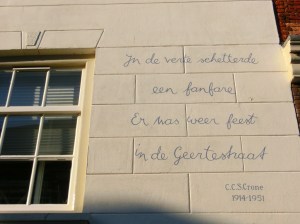 In de verte schetterde
een fanfare
Er was weer feest
in de Geertestraat
C.C.S.Crone
1914-1951